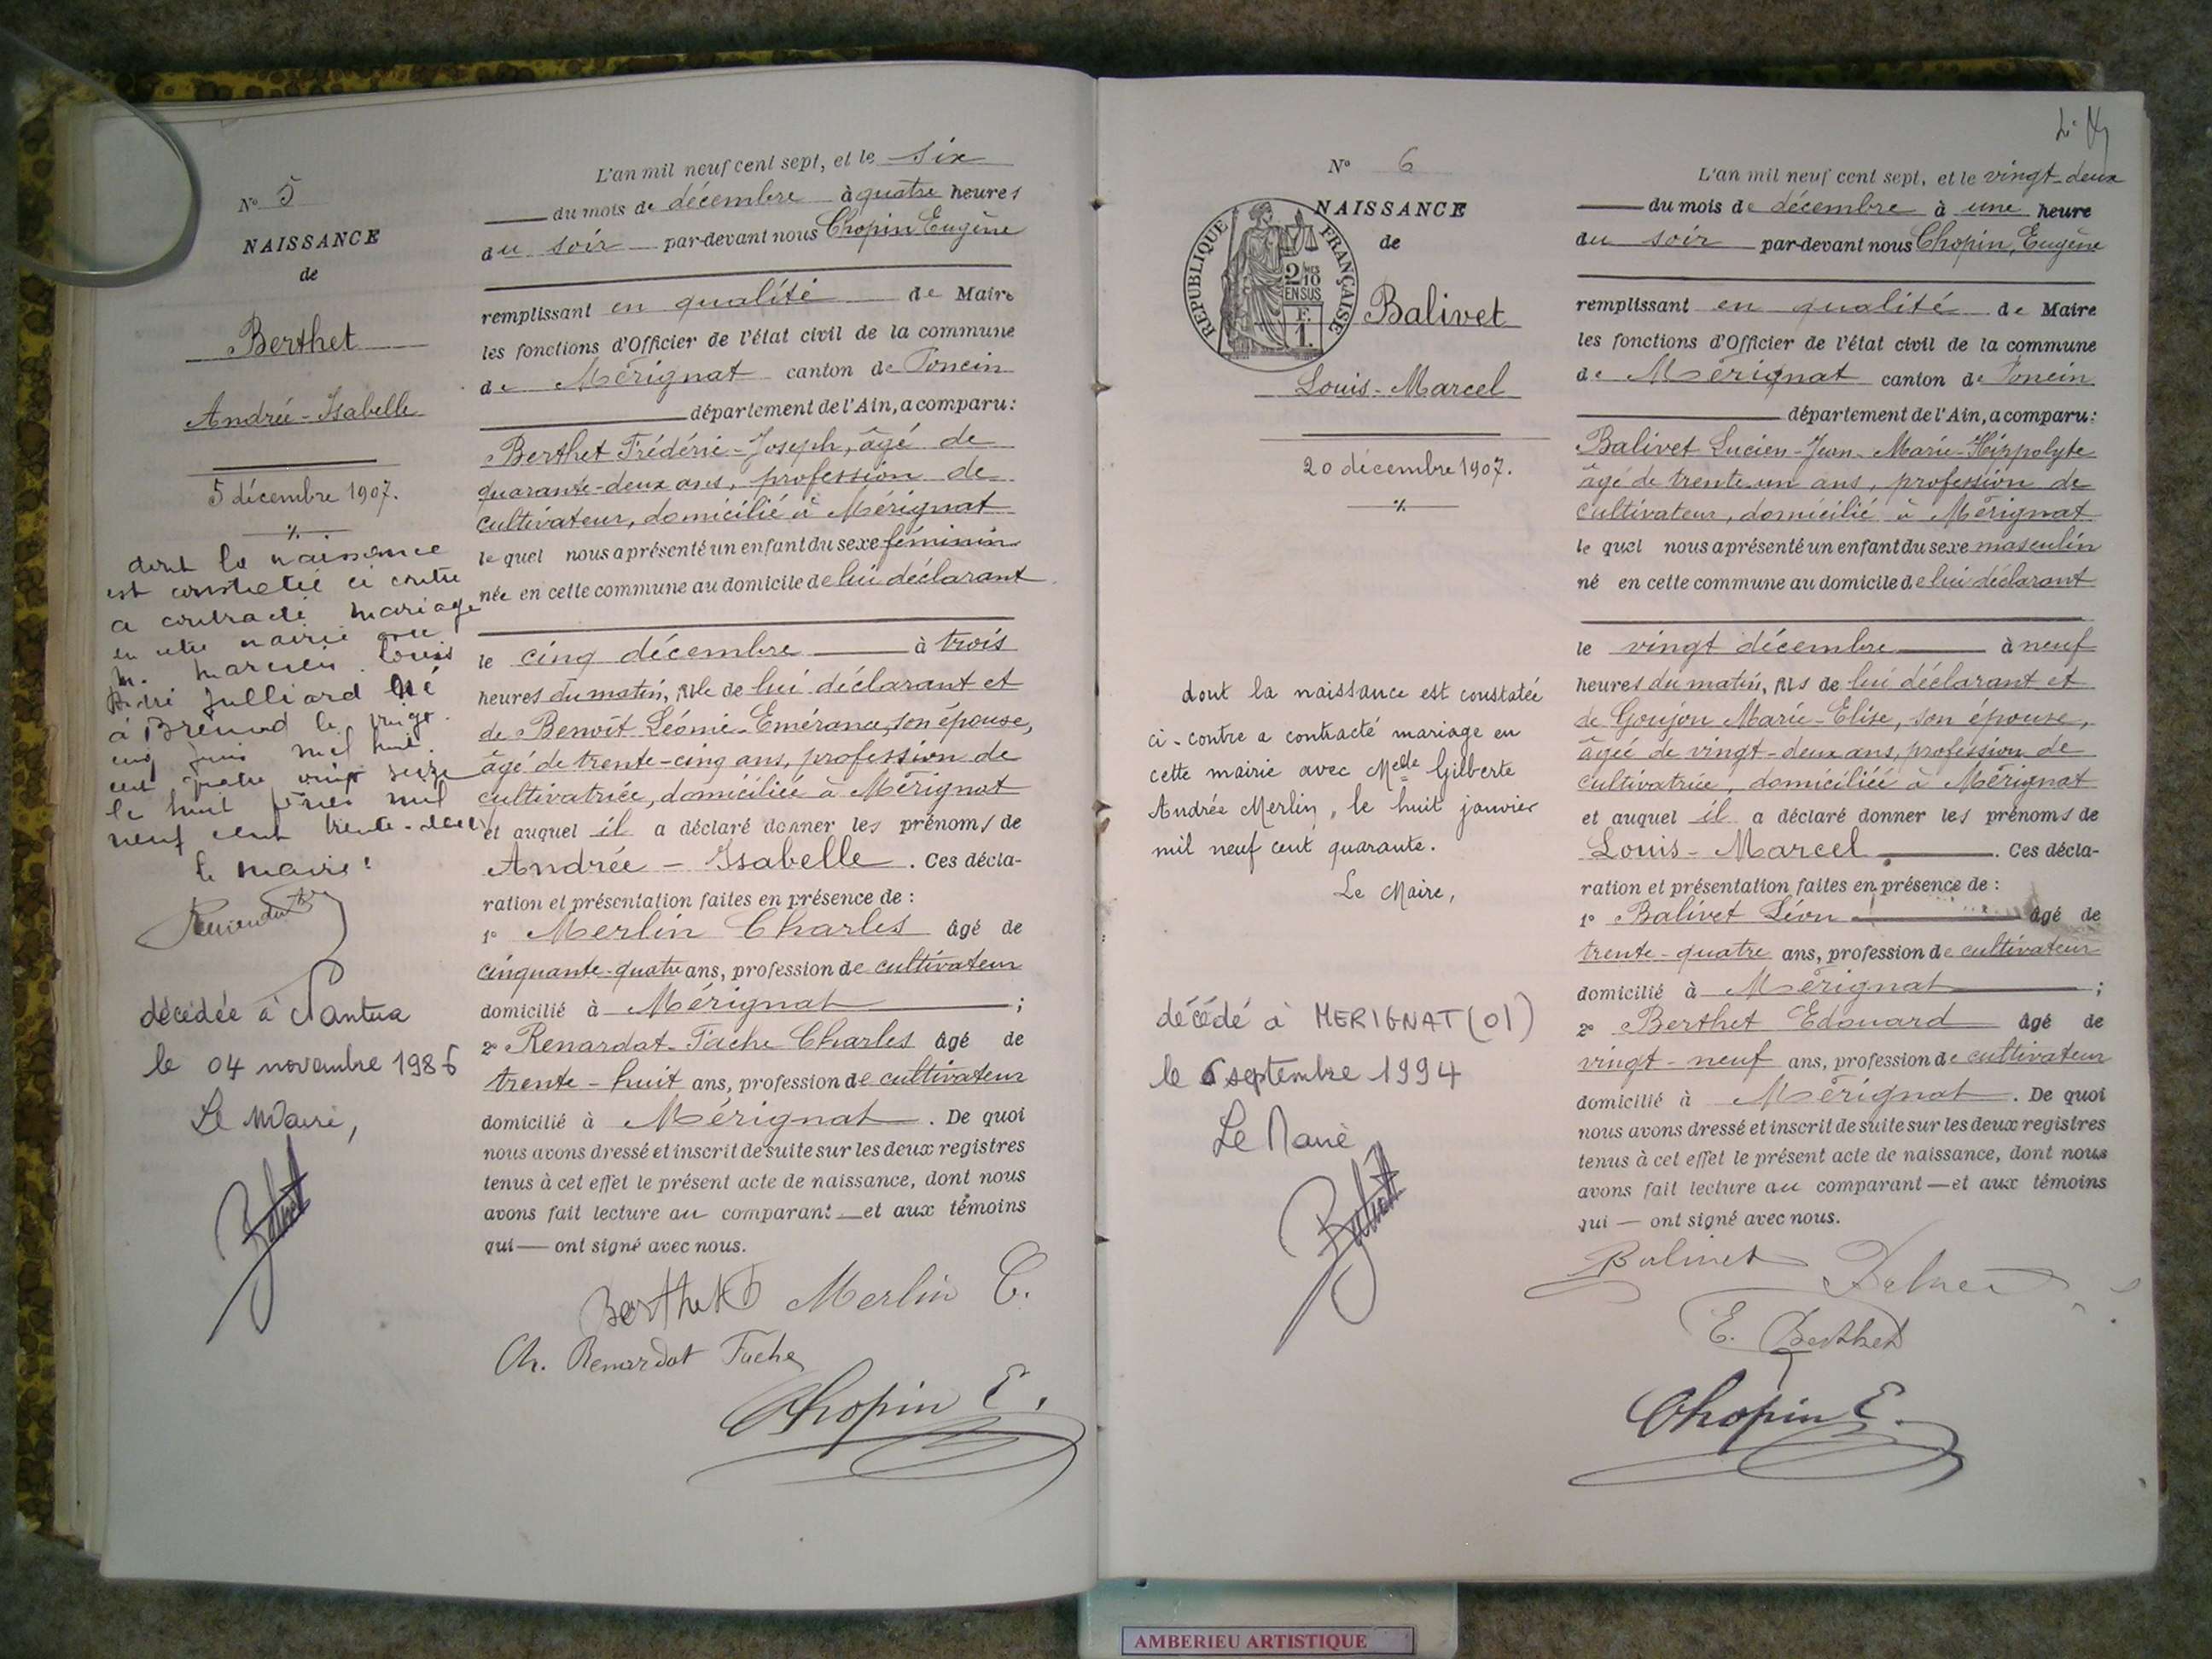 No 5
NAISSANCE
de
Berthet
Andrée-Isabelle
5 décembre 1907.
dont la naissance
est constatée ci contre
a contracté mariage
en cette mairie avec
M. Louis
Julliard né
à Brénod le vingt
cinq juin mil huit
cent quatre vingt seize
le huit février mil
neuf cent trente-deux
le maire:
décédée à Nantua
le 04 novembre 1986
Le Maire,
L'an mil neuf cent sept, et le six
du mois de décembre à quatre heures
du soir par-devant nous Chopin Eugène
remplissant en qualité de Maire
les fonctions d'Officier de l'état civil de la commune
de Mérignat canton de Poncin
département de l'Ain, a comparu:
Berthet Frédéric-Joseph, âgé de
quarante-deux ans, profession de
cultivateur, domicilié à Mérignat
le quel nous a présenté un enfant du sexe féminin
née en cette commune au domicile de lui déclarant
le cinq décembre à trois
heures du matin, fille de lui déclarant et
de Benoît Léonie-Emérance, son épouse,
âgé de trente-cinq ans, profession de
cultivatrice, domiciliée à Mérignat
et auquel il a déclaré donner les prénoms de
Andrée - Isabelle. Ces décla-
ration et présentation faites en présence de :
1° Merlin Charles âgé de
cinquante-quatre ans, profession de cultivateur
domicilié à Mérignat ;
2° Renardat-Fache Charles âgé de
trente-huit ans, profession de cultivateur
domicilié à Mérignat. De quoi
nous avons dressé et inscrit de suite sur les deux registres
tenus à cet effet le présent acte de naissance, dont nous
avons fait lecture au comparant — et aux témoins
qui — ont signé avec nous.
Berthet Merlin C.
Ch. Renardat Fache
Chopin E.
No 6
NAISSANCE
de
REPUBLIQUE FRANÇAISE
2/10 MES
EN SUS
F.
1.
Balivet
Louis-Marcel
20 décembre 1907.
dont la naissance est constatée
ci-contre a contracté mariage en
cette mairie avec Melle Gilberte
Andrée Merlin, le huit janvier
mil neuf cent quarante.
Le Maire,
décédé à MERIGNAT (01)
le 6 septembre 1994
Le Maire
L'an mil neuf cent sept, et le vingt-deux
du mois de décembre à une heure
du soir par-devant nous Chopin, Eugène
remplissant en qualité de Maire
les fonctions d'Officier de l'état civil de la commune
de Mérignat canton de Poncin
département de l'Ain, a comparu:
Balivet Lucien-Jean-Marie-Hippolyte
âgé de trente un ans, profession de
cultivateur, domicilié à Mérignat
le quel nous a présenté un enfant du sexe masculin
né en cette commune au domicile de lui déclarant
le vingt décembre à neuf
heures du matin, fils de lui déclarant et
de Goujon Marie-Elise, son épouse,
âgée de vingt-deux ans, profession de
cultivatrice, domiciliée à Mérignat
et auquel il a déclaré donner les prénoms de
Louis-Marcel. Ces décla-
ration et présentation faites en présence de :
1° Balivet Léon âgé de
trente-quatre ans, profession de cultivateur
domicilié à Mérignat ;
2° Berthet Edouard âgé de
vingt-neuf ans, profession de cultivateur
domicilié à Mérignat. De quoi
nous avons dressé et inscrit de suite sur les deux registres
tenus à cet effet le présent acte de naissance, dont nous
avons fait lecture au comparant — et aux témoins
qui — ont signé avec nous.
Balivet
E. Berthet
Chopin E.
AMBERIEU ARTISTIQUE